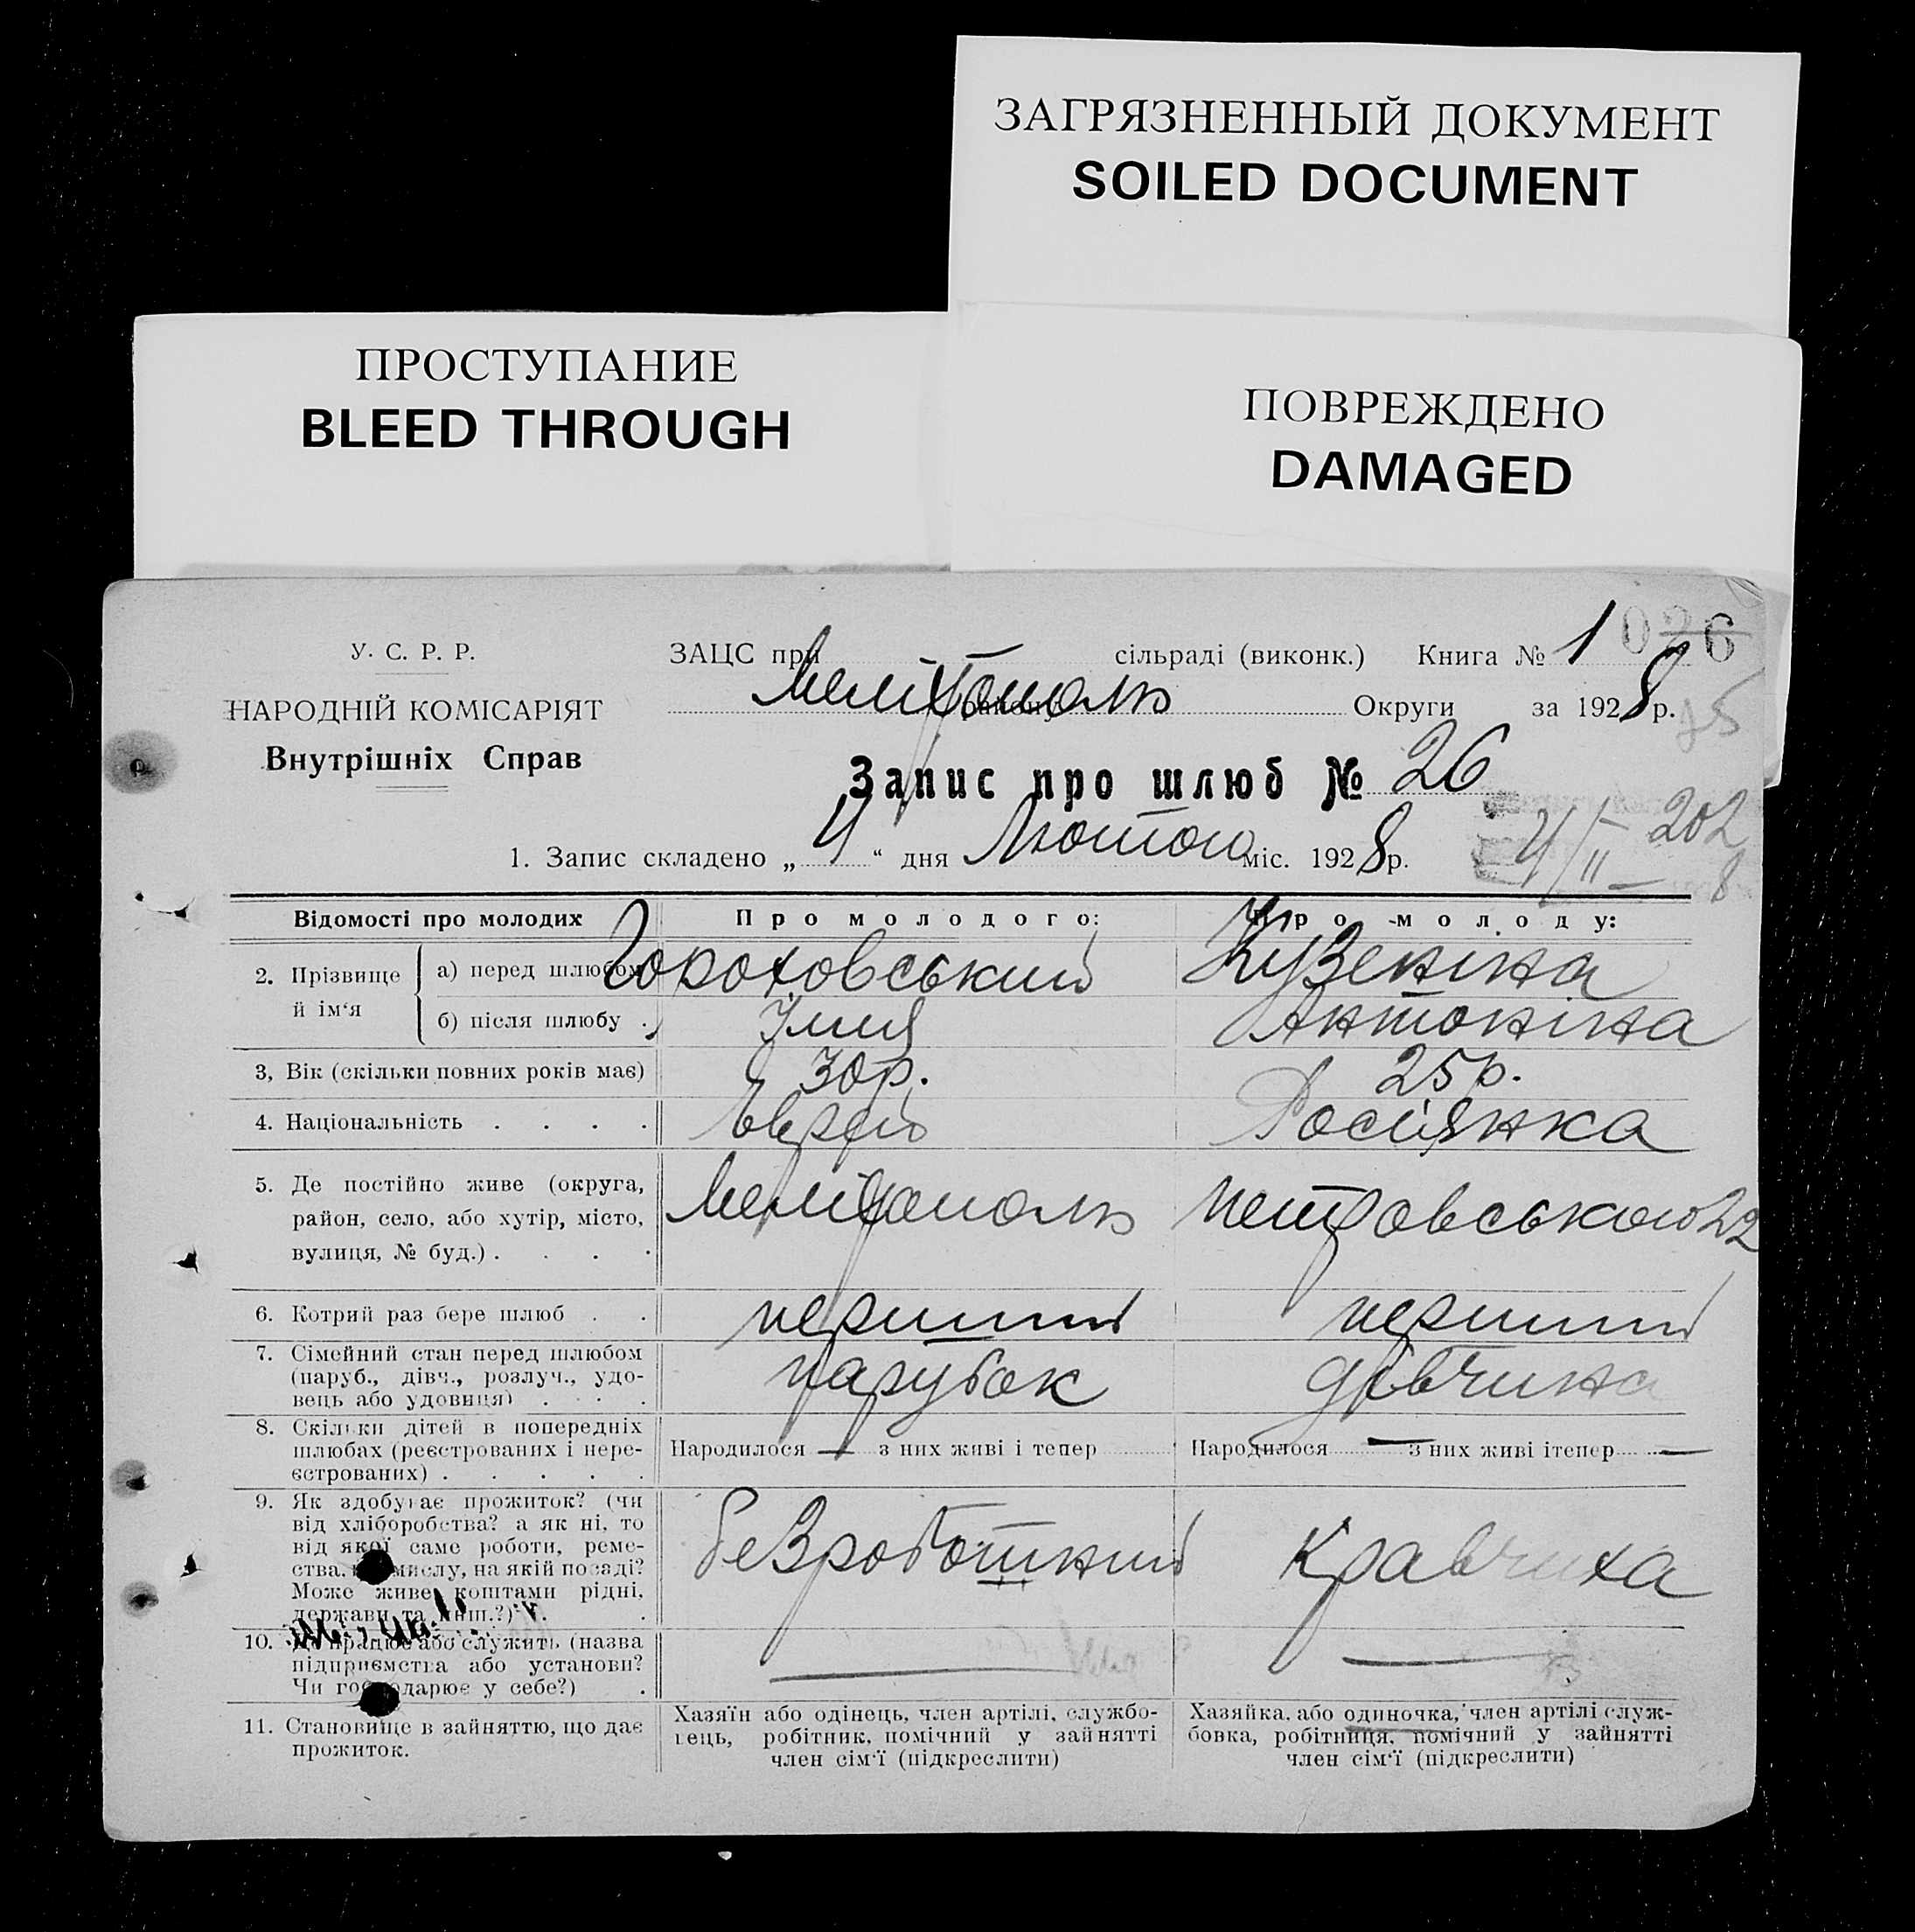 ЗАГРЯЗНЕННЫЙ ДОКУМЕНТ
SOILED DOCUMENT
ПРОСТУПАНИЕ
BLEED THROUGH
ПОВРЕЖДЕНО
DAMAGED
У. С. Р. Р.
НАРОДНІЙ КОМІСАРІЯТ
Внутрішніх Справ
ЗАЦС при сільраді (виконк.) Книга № 1 026
Мелітополь району Округи за 1928 р.
75
Запис про шлюб № 26
1. Запис складено „ 4 “ дня Лютого міс. 1928 р.
4/II 202
8
Відомості про молодих Про молодого: Про молоду:
2. Прізвище й ім'я
а) перед шлюбом Гороховський Кузекіна
б) після шлюбу . Ілля Антоніна
3, Вік (скільки повних років має) 30 р. 25 р.
4. Національність . . . . Єврей Росіянка
5. Де постійно живе (округа,
район, село, або хутір, місто,
вулиця, № буд.) . . . .
Мелітополь Петровського 22
6. Котрий раз бере шлюб . . перший перший
7. Сімейний стан перед шлюбом
(паруб., дівч., розлуч., удо-
вець або удовиця) . . . .
парубок дівчина
8. Скільки дітей в попередніх
шлюбах (реєстрованих і нере-
єстрованих) . . . . .
Народилося — з них живі і тепер
Народилося — з них живі ітепер —
9. Як здобуває прожиток? (чи
від хліборобства? а як ні, то
від якої саме роботи, реме-
ства, промислу, на якій посаді?
Може живе коштами рідні,
держави та инш.?) . .
безроботний кравчиха
10. Де працює або служить (назва
підприємства або установи?
Чи господарює у себе?) .
— —
11. Становище в зайняттю, що дає
прожиток.
Хазяїн або одінець, член артілі, службо-
вець, робітник, помічний у зайнятті
член сім'ї (підкреслити)
Хазяйка, або одиночка, член артілі служ-
бовка, робітниця, помічний у зайнятті
член сім'ї (підкреслити)